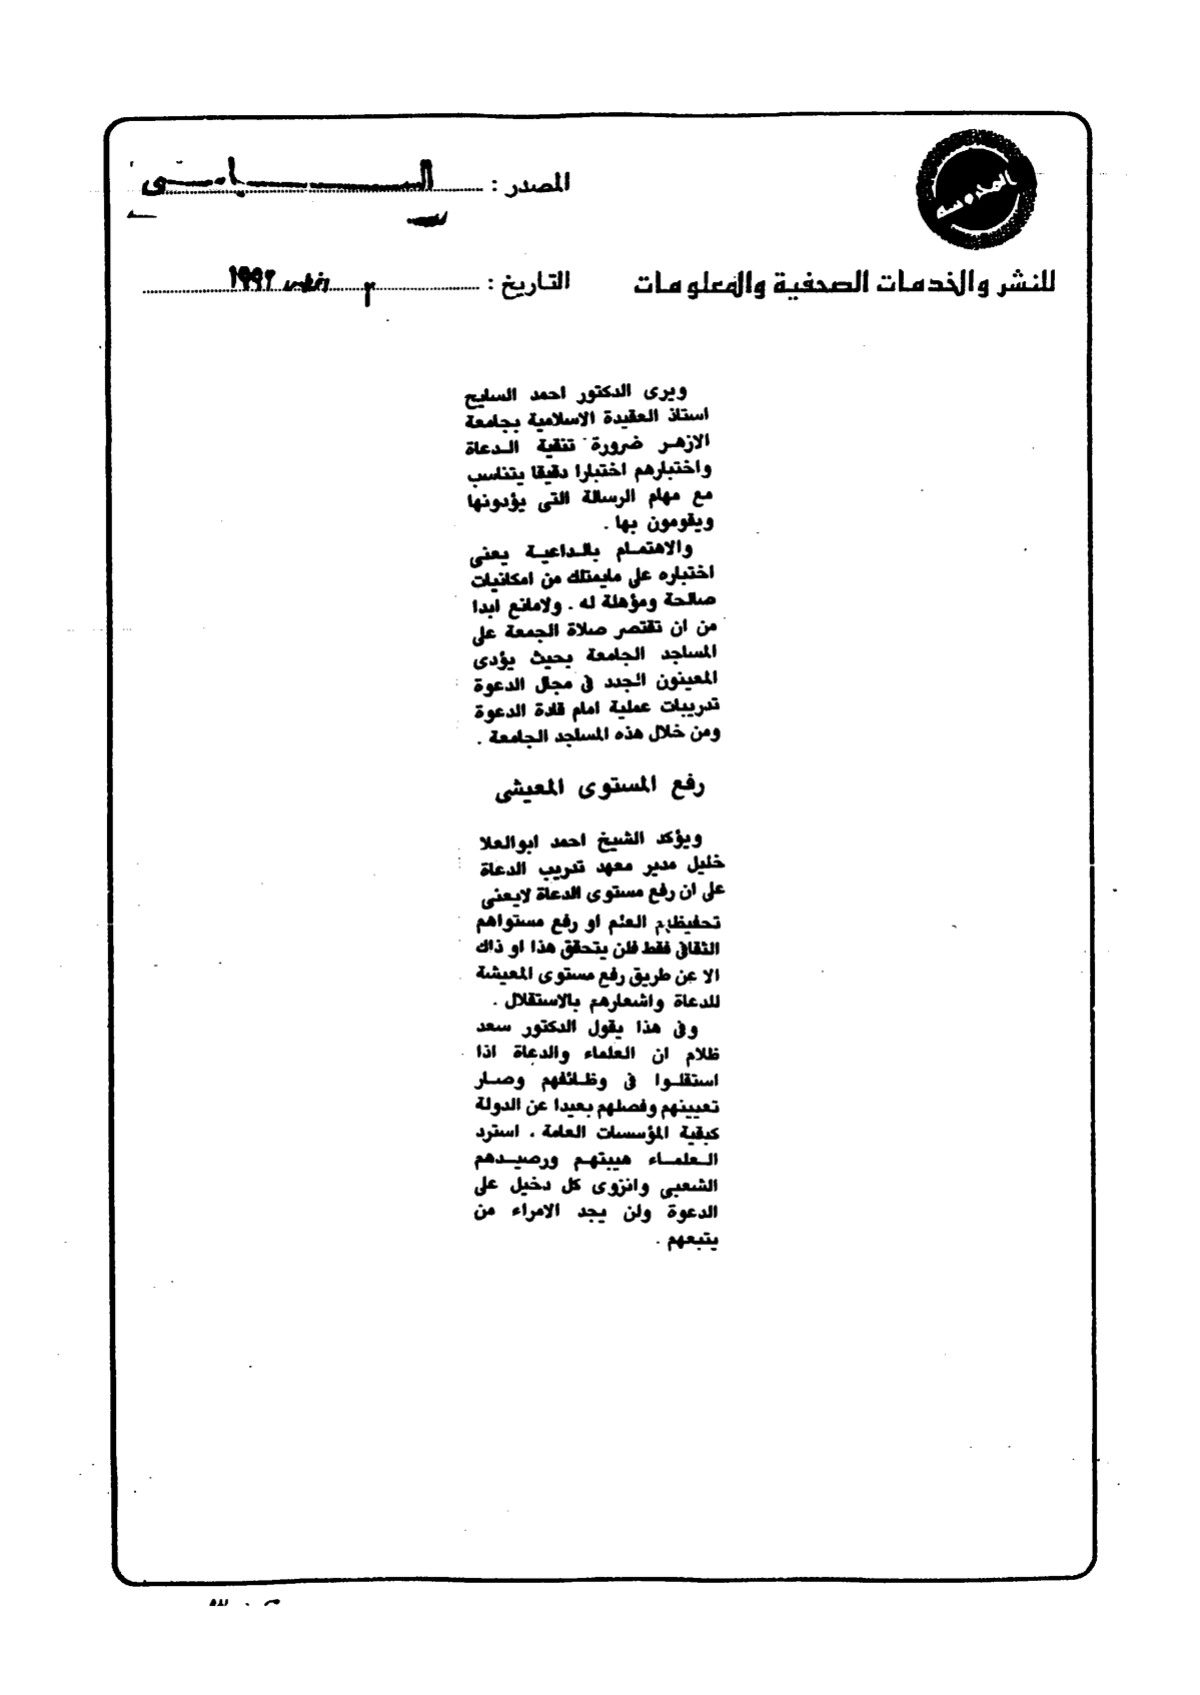 المحروسة
للنشر والخدمات الصحفية والمعلومات
المصدر :
التاريخ : ٢ اغسطس ١٩٩٢
ويرى الدكتور احمد السايح
استاذ العقيدة الاسلامية بجامعة
الازهر ضرورة تنقية الدعاة
واختبارهم اختبارا دقيقا يتناسب
مع مهام الرسالة التى يؤدونها
ويقومون بها .
والاهتمام بالداعية يعنى
اختباره على مايمتلك من امكانيات
صالحة ومؤهلة له . ولامانع ابدا
من ان تقتصر صلاة الجمعة على
المساجد الجامعة بحيث يؤدى
المعينون الجدد فى مجال الدعوة
تدريبات عملية امام قادة الدعوة
ومن خلال هذه المساجد الجامعة .
رفع المستوى المعيشى
ويؤكد الشيخ احمد ابوالعلا
خليل مدير معهد تدريب الدعاة
على ان رفع مستوى الدعاة لايعنى
تحفيظهم العلم او رفع مستواهم
الثقافى فقط فلن يتحقق هذا او ذاك
الا عن طريق رفع مستوى المعيشة
للدعاة واشعارهم بالاستقلال .
وفى هذا يقول الدكتور سعد
ظلام ان العلماء والدعاة اذا
استقلوا فى وظائفهم وصار
تعيينهم وفصلهم بعيدا عن الدولة
كبقية المؤسسات العامة . استرد
العلماء هيبتهم ورصيدهم
الشعبى وانزوى كل دخيل على
الدعوة ولن يجد الامراء من
يتبعهم .